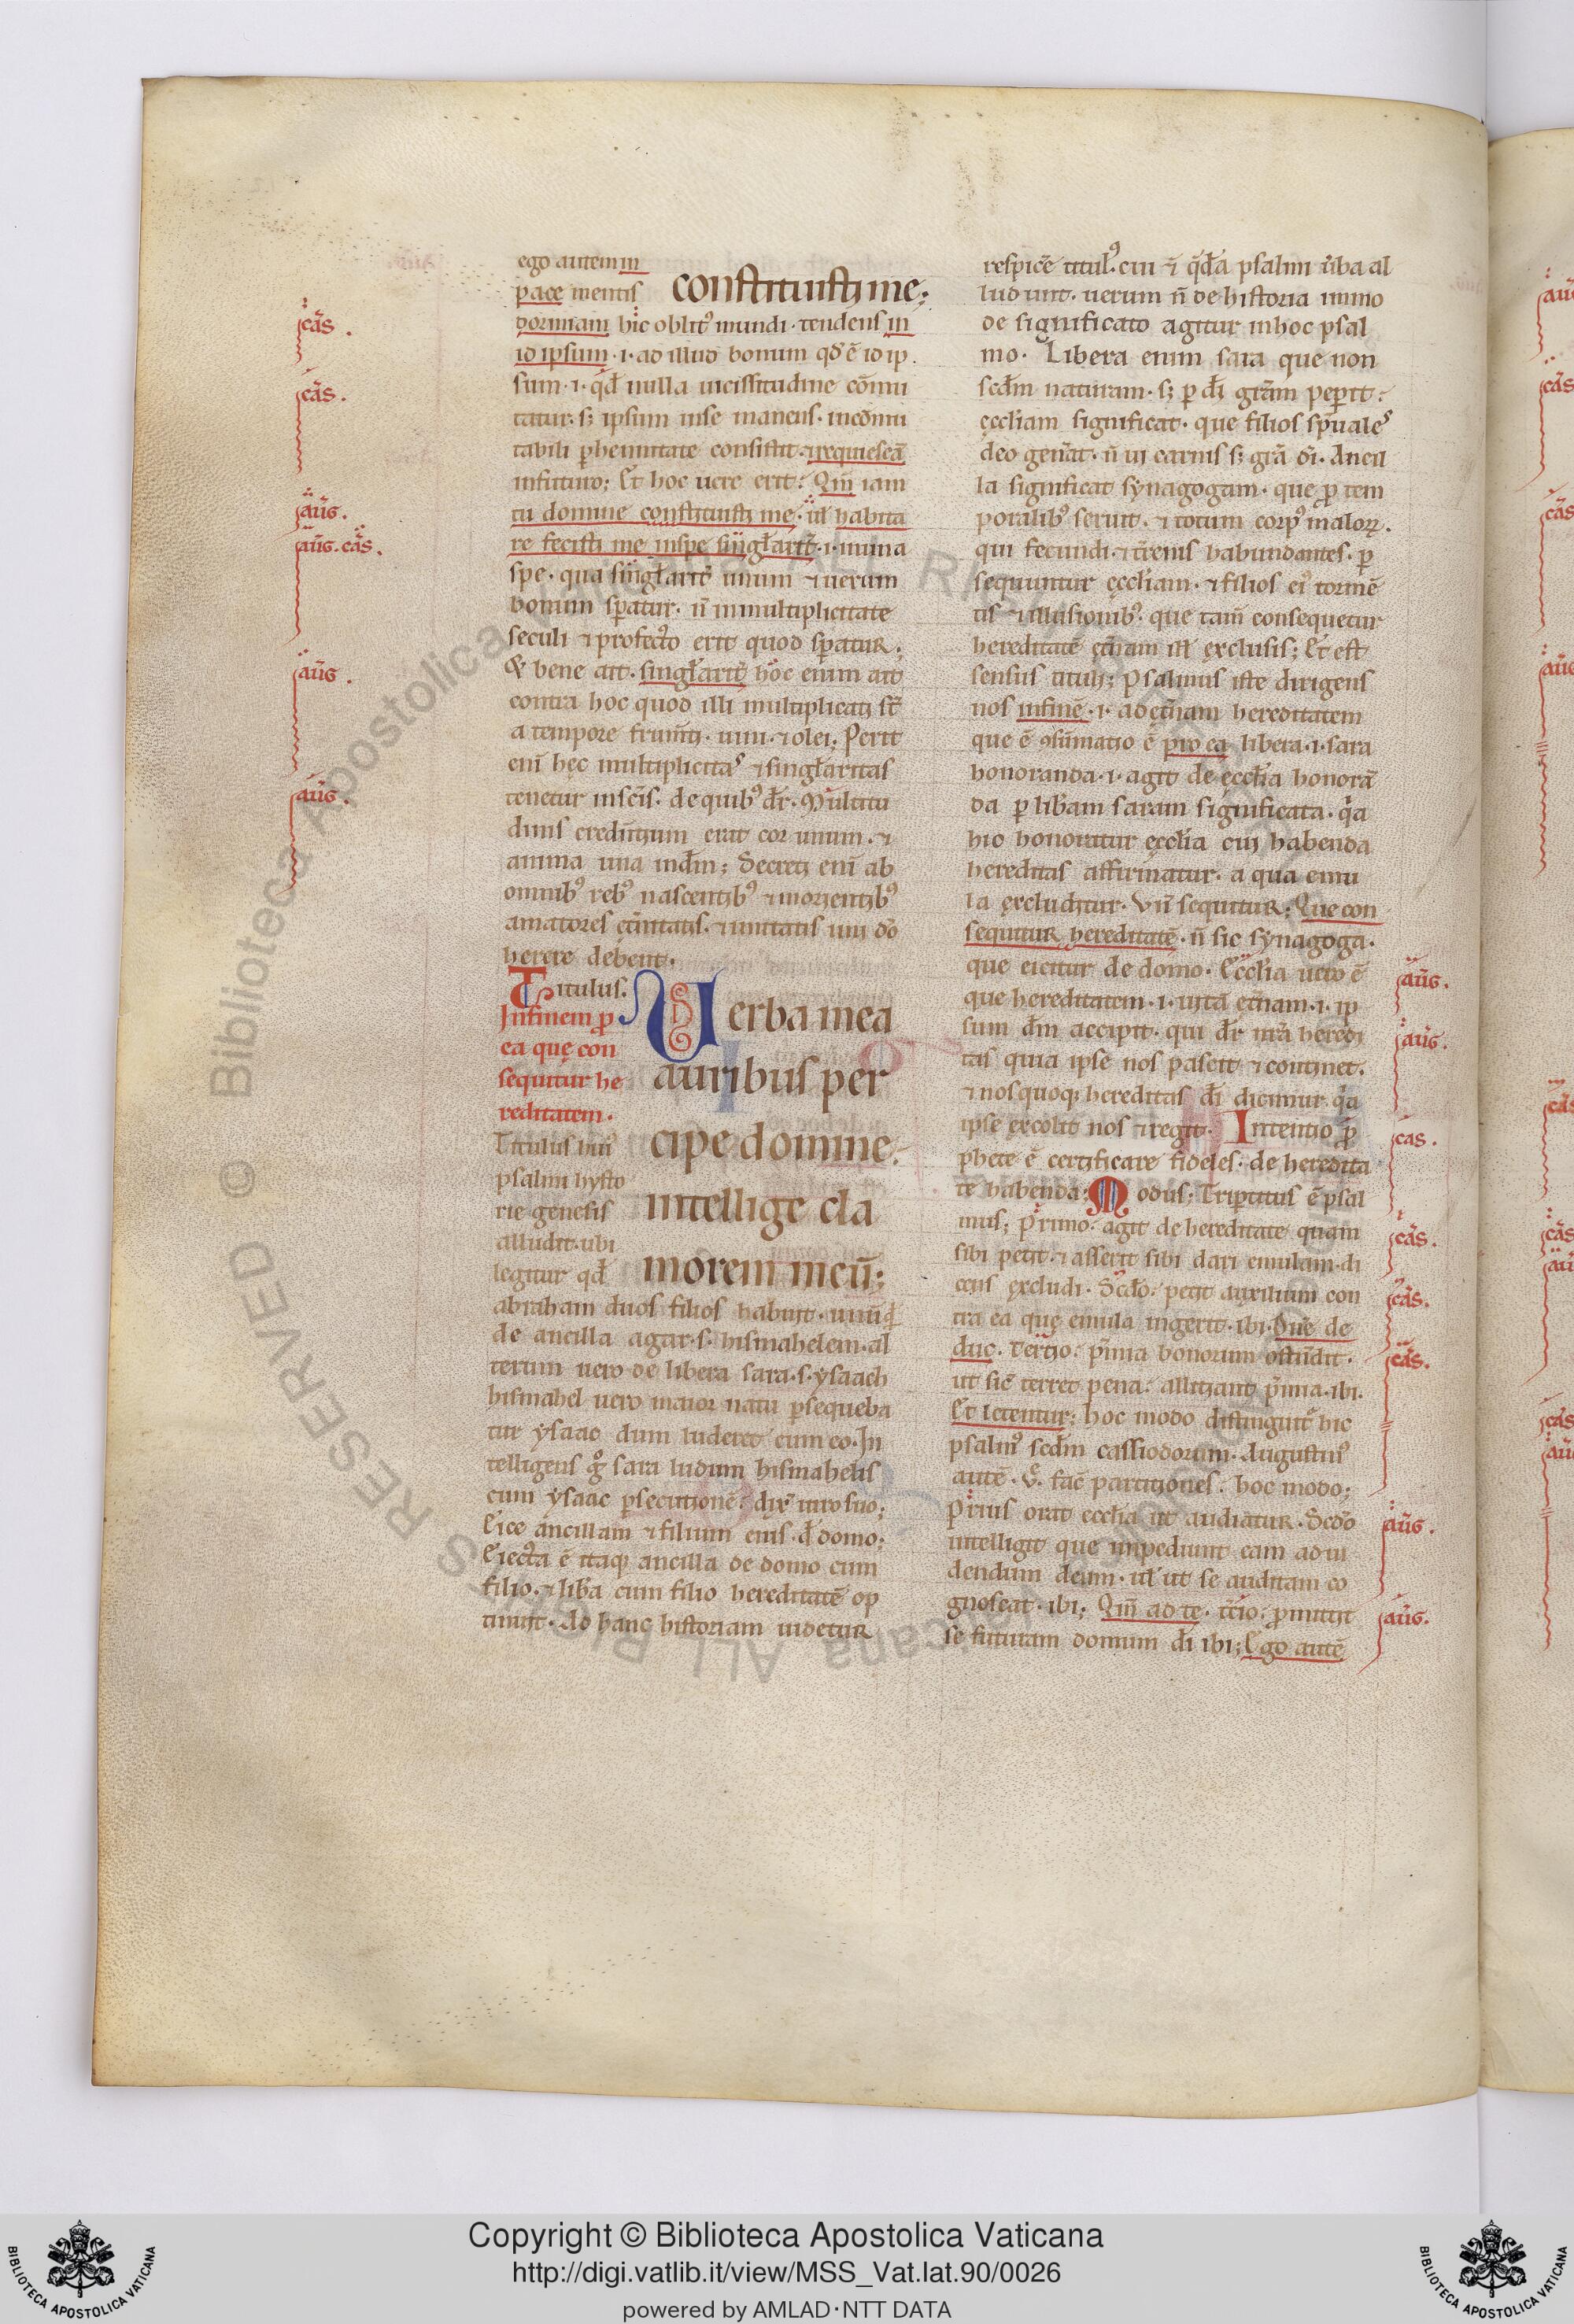 ego autem in
pace mentis constituisti me;
dormiam hic oblit᾿ mundi · tendens in
id ipsum · i · ad illud bonum qđ ē id ip
sum · i · qđ nulla uicissitudine cōmu
tatur · s; ipsum inse manens · incōmu
tabili phennitate consistit · ⁊ requiescā
infinito; Et hoc uere erit: Qm̄ iam
tu domine constituisti me · ul̄ habita
re fecisti me inspe singl̄arit᷑ · i · inuna
spe · qua singl̄arit᷑ unum ⁊ uerum
bonum spatur · n̄ inmultiplicitate
seculi ⁊ profecto erit quod spatur;
& bene ait · singl̄arit᷑ hoc enim ait
contra hoc quod illi multiplicati st̄
a tempore frumti · uini · ⁊ olei; Perit
enī hęc multiplicitas ⁊ singl̄aritas
tenetur inscīs · de quib᾿ dr̄ · Multitu
dinis credn̄tium erat cor unum · ⁊
anima una indm̄; Decreti enī ab
omnib᾿ reb᾿ nascentib᾿ ⁊ morientib᾿
amatores et̄nitatis · ⁊ unitatis uni dō
herere debent ·
Titulus.
Infinem p
ea quę con
sequitur he
reditatem ·
Verba mea
auribus per
cipe domine:
intellige cla
morem meū;
Titulus hui᾿
psalmi hysto
rie genesis
alludit · ubi
legitur qđ
abraham duos filios habuit · unū qđ
de ancilla agar · s · hismahelem · al
terum uero de libera sara · s · ysaach
hismahel uero maior natu psequeba
tur ysaac dum luderet cum eo · In
telligens g° sara ludum hismahelis
cum ysaac psecutionē: dix̄ uiro suo;
Eice ancillam ⁊ filium eius đ domo;
Eiecta ē itaq; ancilla de domo cum
filio · ⁊ lib̄a cum filio hereditatē op
tinuit · Ad hanc historiam uidetur
respicē titul᾿ · cui ⁊ q̄dā psalmi ūba al
ludunt · uerum n̄ de historia immo
de significato agitur inhoc psal
mo · Libera enim sara que non
scđm naturam · s; p dī grām pep̄it:
ęccliam significat · que filios spuales
deo gen̄at · n̄ ui carnis s; grā dī · Ancil
la significat synagogam · que p tem
poralib᾿ seruit · ⁊ totum corp᾿ malorꝝ ·
qui fecundi · ⁊ tr̄enis habundantes · p
sequuntur ęccliam · ⁊ filios ei᾿ tormē
tis ⁊ illusionib᾿ · que tam̄ consequetur
hereditatē et̄nam ill̄ exclusis; Et est
sensus tituli; psalmus iste dirigens
nos infinē · i · ad et̄nam hereditatem
que ē 9sūmatio ē pro ea libera · i · sara
honoranda · i · agit de ęcclia honorā
da p lib̄am saram significata · q̄a
hic honoratur ęcclia cui habenda
hereditas affirmatur · a qua emu
la excluditur · Vn̄ sequitur; Que con
sequitur hereditatē · n̄ sic synagoga ·
que eicitur de domo · Ecclia uero ē
que hereditatem · i · uitā et̄nam · i · ip
sum dm̄ accipit · qui dr̄ nrā heredi
tas quia ipse nos pascit ⁊ continet ·
⁊ nos quoq; hereditas dī dicimur q̄a
ipse excolit nos ⁊ regit · Intentio p
phete ē certificare fideles · de heredita
te habenda; Modus; Triptitus ē psal
mus; primo · agit de hereditate quam
sibi petit · ⁊ asserit sibi dari emulam · di
cens excludi · Scđo: petit auxilium con
tra ea quę emula ingerit · ibi · Dn̄e de
duc · Tertio: p̄mia bonorum ostendit ·
ut sic̄ terret pena: alliciant p̄mia · ibi ·
Et letentur; hoc modo distinguit᷑ hic
psalm᾿ scđm cassiodorum · Augustin᾿
autē · v · fac̄ partitiones · hoc modo;
Prius orat ecclia ut audiatur · Scđo
intelligit que impediunt eam ad ui
dendum deum · ul̄ ut se auditam co
gnoscat · ibi; Qm̄ ad te · t̄cio: pmittit
se futuram domum dī ibi; Ego autē
cās.
cās.
aūg.
aūg. cās.
aūg.
aūg.
aūg.
aūg.
cas.
cās.
cās.
cās.
aūg.
aūg.
Copyright © Biblioteca Apostolica Vaticana
http://digi.vatlib.it/view/MSS_Vat.lat.90/0026
powered by AMLAD·NTT DATA
BIBLIOTECA APOSTOLICA VATICANA
BIBLIOTECA APOSTOLICA VATICANA